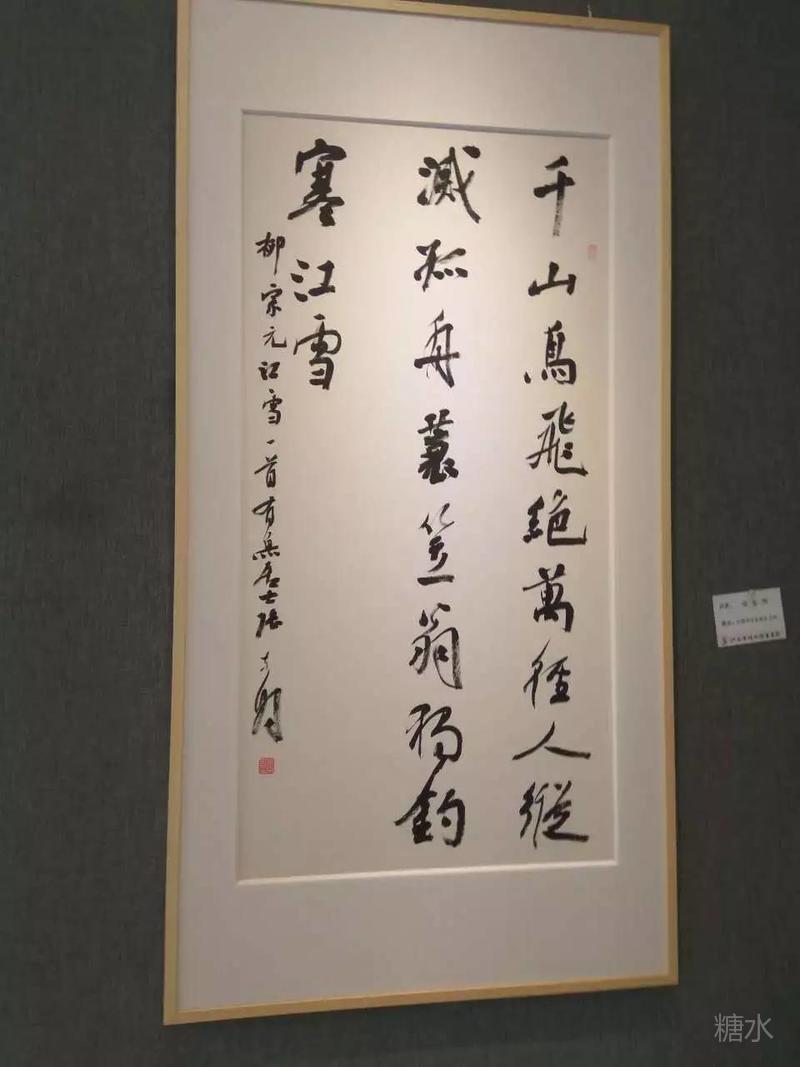 千山鳥飛絶萬徑人縱
滅孤舟蓑笠翁獨釣
寒江雪
柳宗元江雪一首有無居士張
糖水